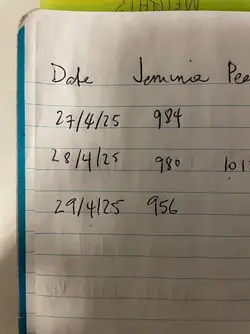 Date Jemima Pee
27/4/25 984
28/4/25 980 101
29/4/25 956